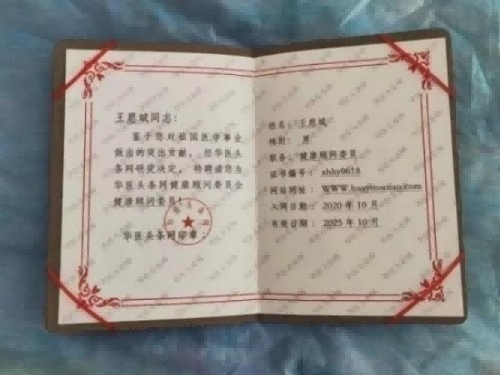 王恩斌同志：
鉴于您对祖国医学事业
做出的突出贡献，经华医头
条网研究决定，特聘请您为
华医头条网健康顾问委员会
健康顾问委员！
华医头条网印章：
姓名：王恩斌
性别：男
职务：健康顾问委员
证书编号：
网站网址：
入网日期：2020年10月
有效日期：2025年10月